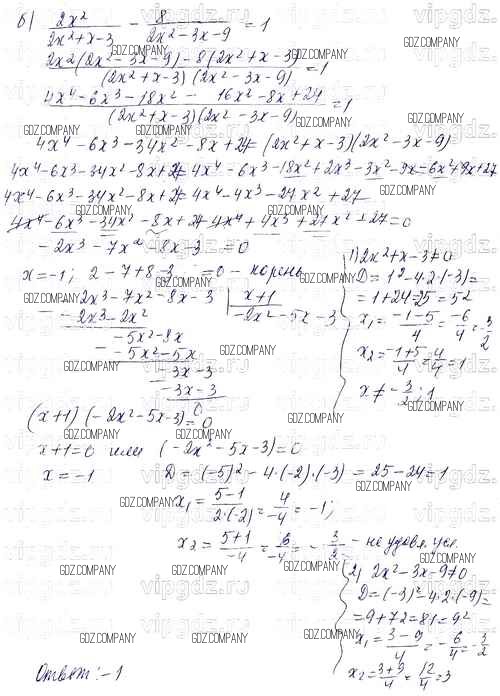 б) 2x²/(2x²+x-3) - 8/(2x²-3x-9) = 1
2x²(2x²-3x-9)-8(2x²+x-3)/(2x²+x-3)(2x²-3x-9) = 1
4x⁴-6x³-18x²-16x²-8x+24/(2x²+x-3)(2x²-3x-9) = 1
4x⁴-6x³-34x²-8x+24=(2x²+x-3)(2x²-3x-9)
4x⁴-6x³-34x²-8x+24=4x⁴-6x³-18x²+2x³-3x²-9x-6x²+9x+27
4x⁴-6x³-34x²-8x+24=4x⁴-4x³-27x²+27
-2x³-7x²-8x-3=0
x=-1; 2-7+8-3=0 - корень
-2x³-7x²-8x-3 | x+1
-2x³-2x² -2x²-5x-3
-5x²-8x
-5x²-5x
-3x-3
-3x-3
0
(x+1)(-2x²-5x-3)=0
x+1=0 или (-2x²-5x-3)=0
x=-1 D=(-5)²-4·(-2)·(-3)=25-24=1
x₁=(5-1)/(2·(-2))=4/-4=-1;
x₂=(5+1)/-4=6/-4=-3/2 - не удовл. усл.
1) 2x²+x-3≠0
D=1²-4·2·(-3)=
=1+24=25=5²
x₁=(-1-5)/4=-6/4=-3/2
x₂=(-1+5)/4=4/4=1
x≠-3/2; 1
2) 2x²-3x-9≠0
D=(-3)²-4·2·(-9)=
=9+72=81=9²
x₁=(3-9)/4=-6/4=-3/2
x₂=(3+9)/4=12/4=3
Ответ: -1
GDZ.COMPANY
vipgdz.ru